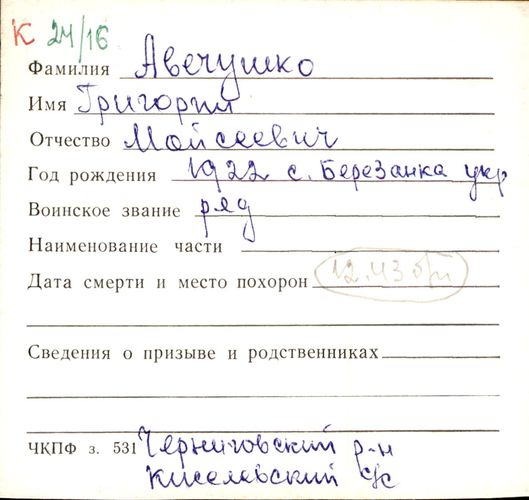 К 24/16
Фамилия Авечушко
Имя Григорий
Отчество Мойсеевич
Год рождения 1922 с. Березанка укр
Воинское звание ряд
Наименование части
Дата смерти и место похорон 12.43
Сведения о призыве и родственниках
ЧКПФ з. 531 Черниговский р-н
Киселевский с/с